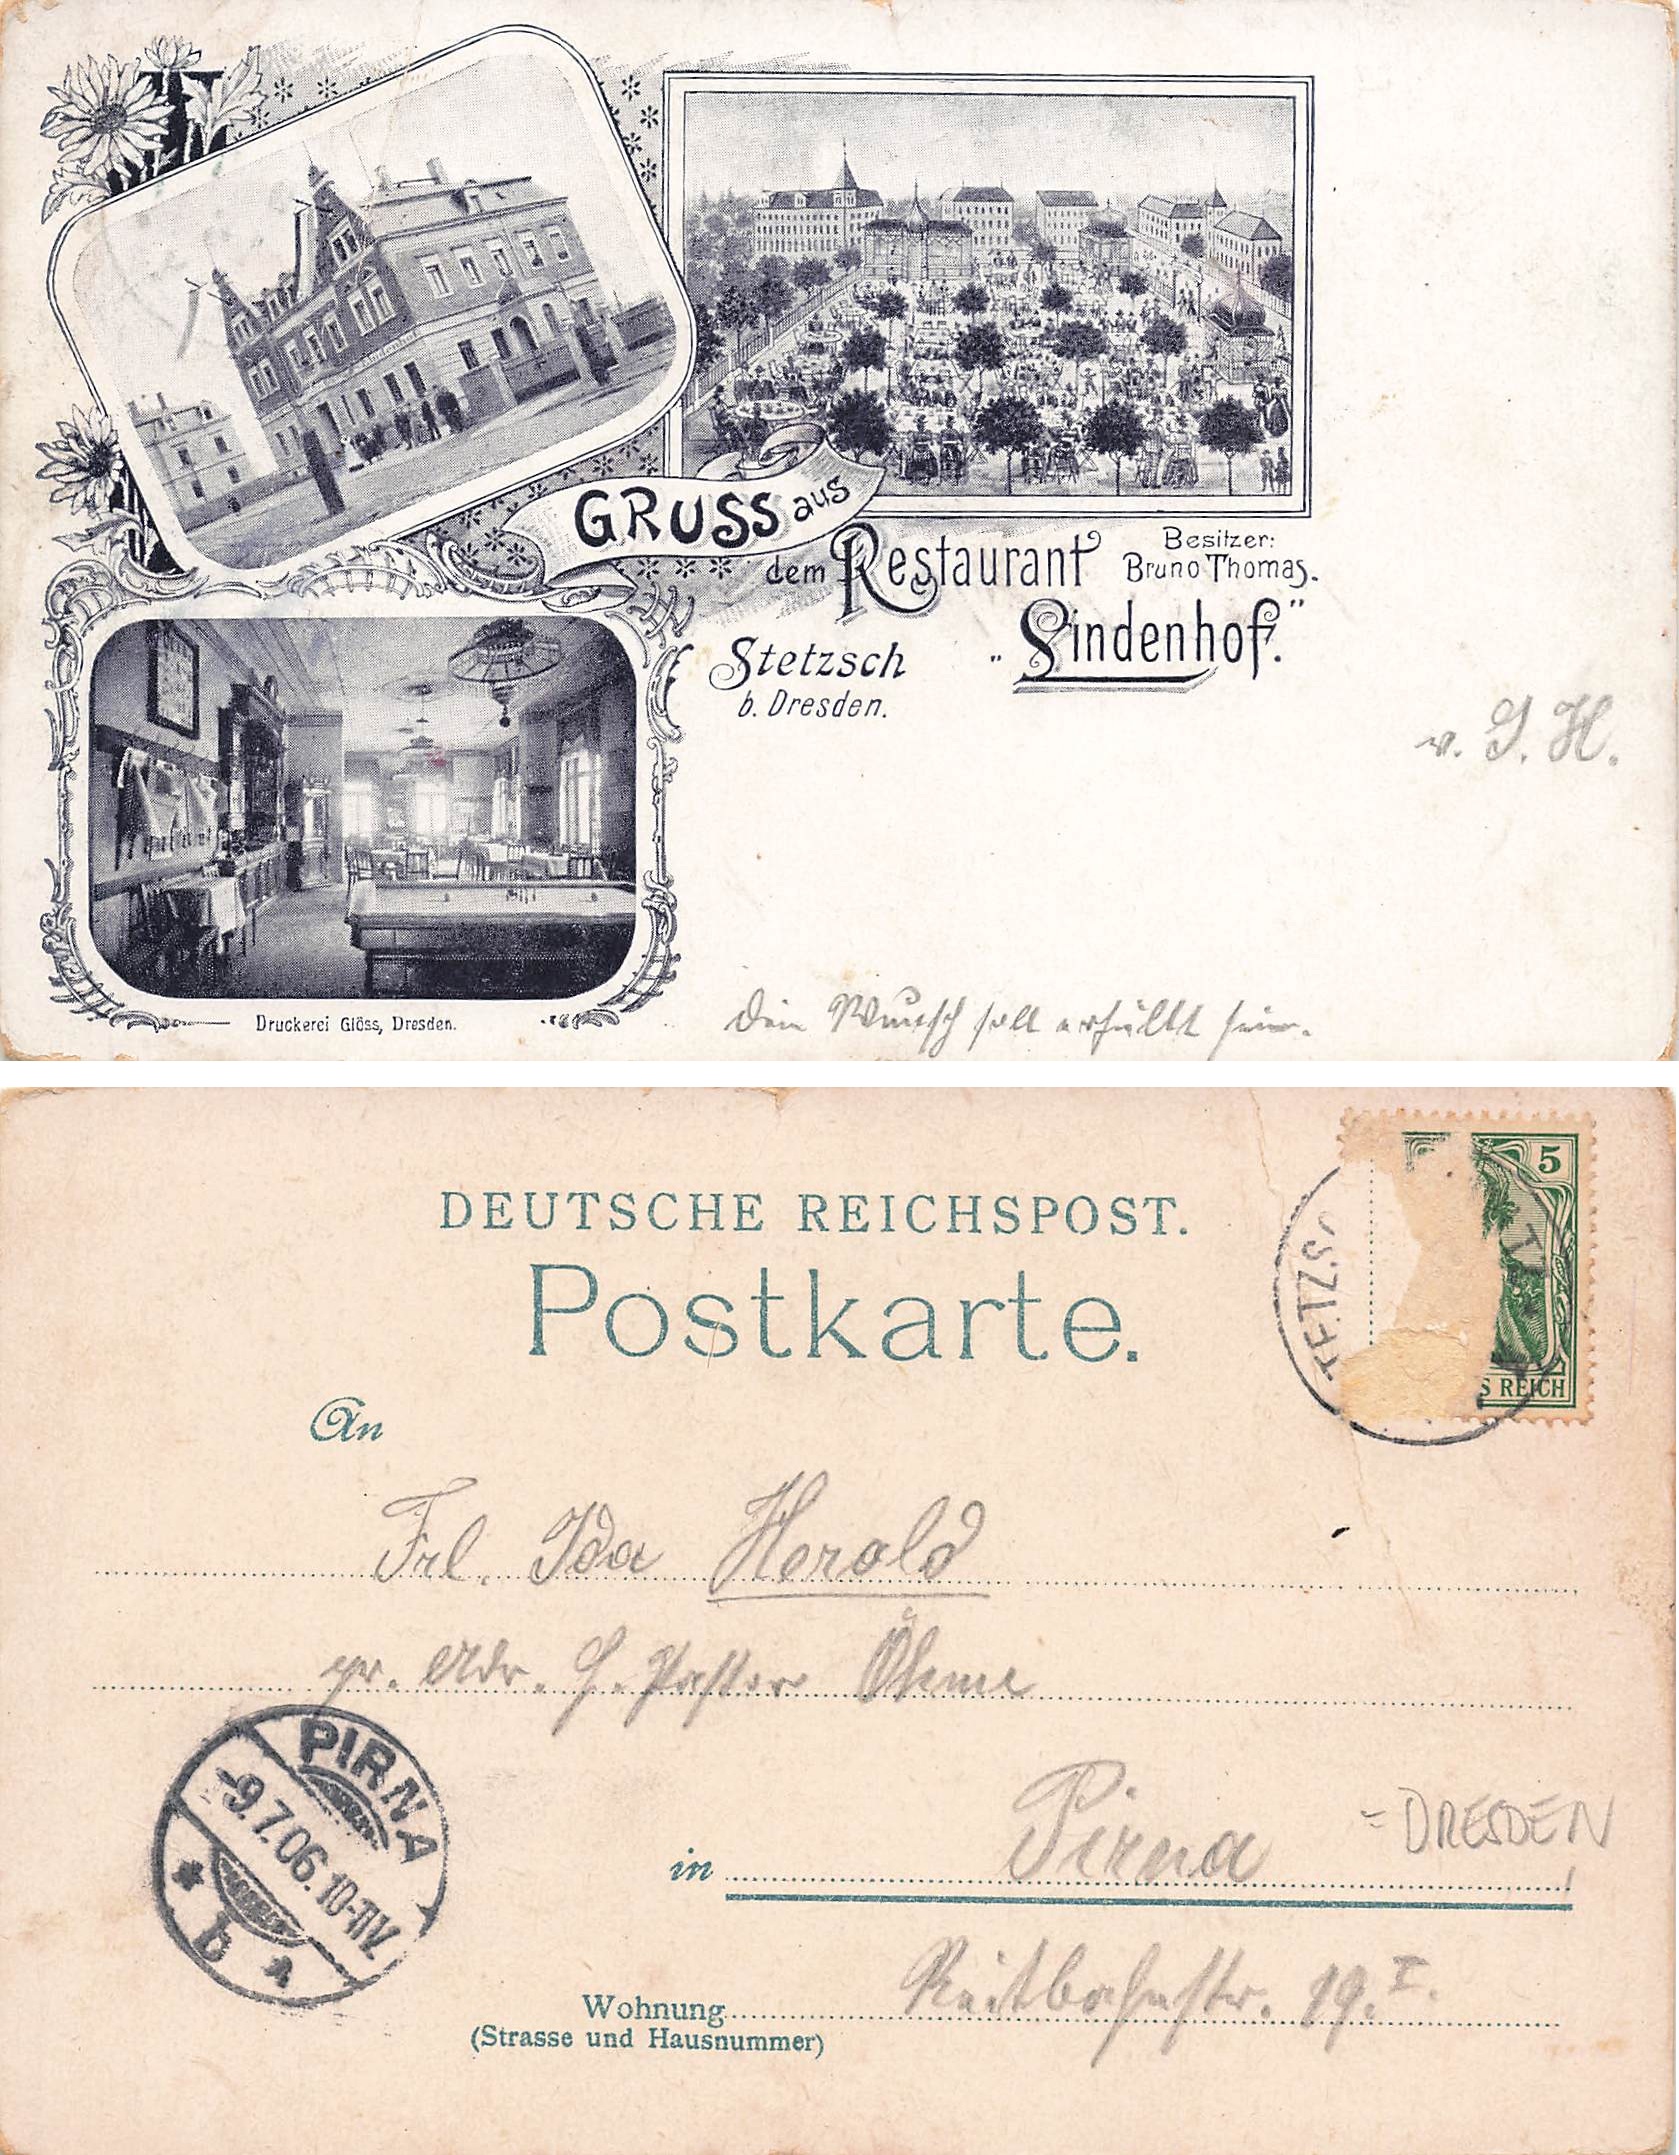 GRUSS aus
dem Restaurant
Besitzer:
Bruno Thomas.
„Lindenhof."
Stetzsch
b. Dresden.
v. I. H.
Dein Wunsch soll erfüllt sein.
Druckerei Glöss, Dresden.
Lindenhof
DEUTSCHE REICHSPOST.
Postkarte.
5
S REICH
TETZSC
An
Frl. Ida Herold
pr. Adr. H. Pastor Öhme
PIRNA
-9.7.06.10-11V.
* b *
in Pirna
= DRESDEN
Wohnung Reitbahnstr. 19.I.
(Strasse und Hausnummer)